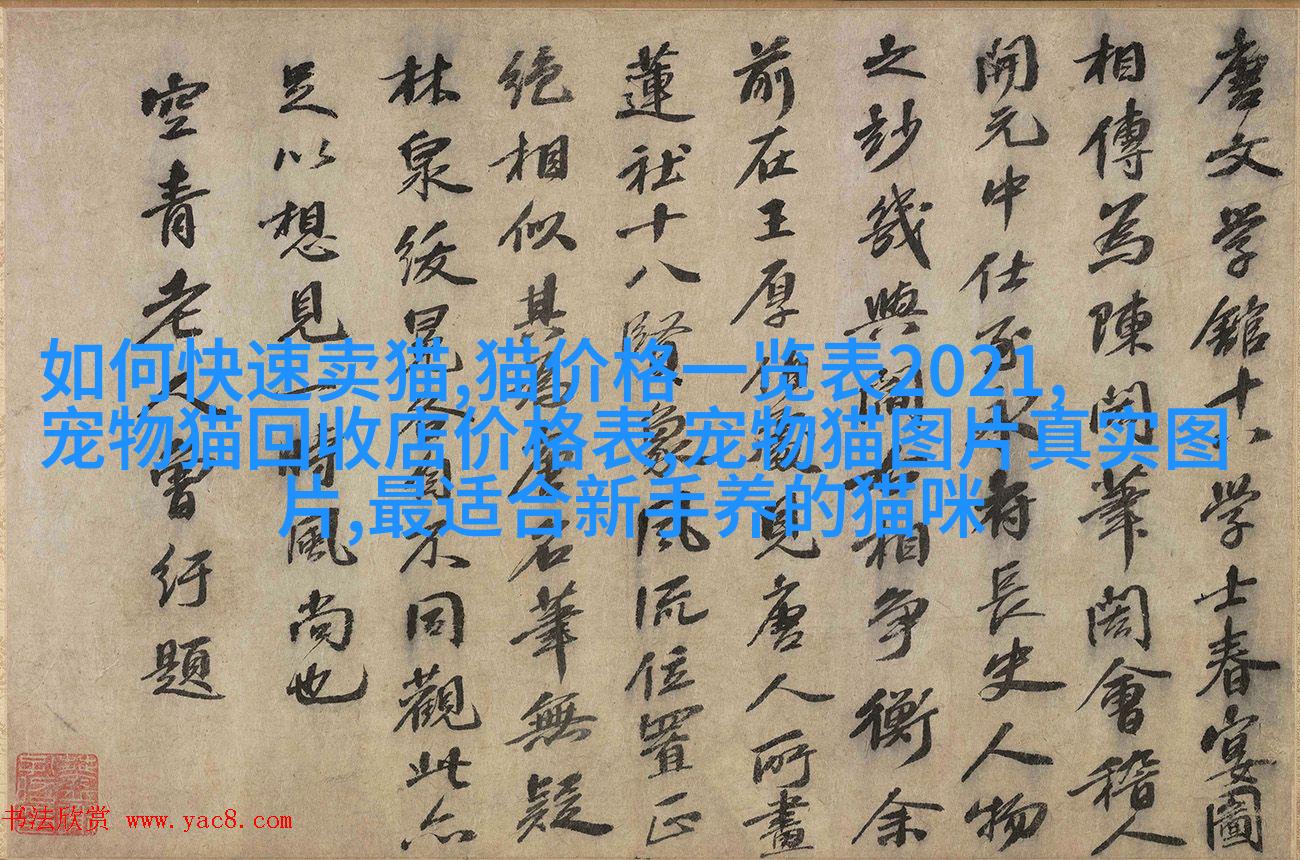 唐文学館十八学士春宴圖
相傳為陳閎筆閎會稽人
開元中仕至府長史人物
之妙幾與閻相争衡余
前在王厚見唐人所畫
蓮社十八賢象風流位置正
絶相似其為唐名筆無疑
林泉綬冕不同觀此亦
足以想見一時風尚也
空青老人曾紆題
如何快速卖猫,猫价格一览表2021,
宠物猫回收店价格表,宠物猫图片真实图
片,最适合新手养的猫咪
书法欣赏 www.yac8.com